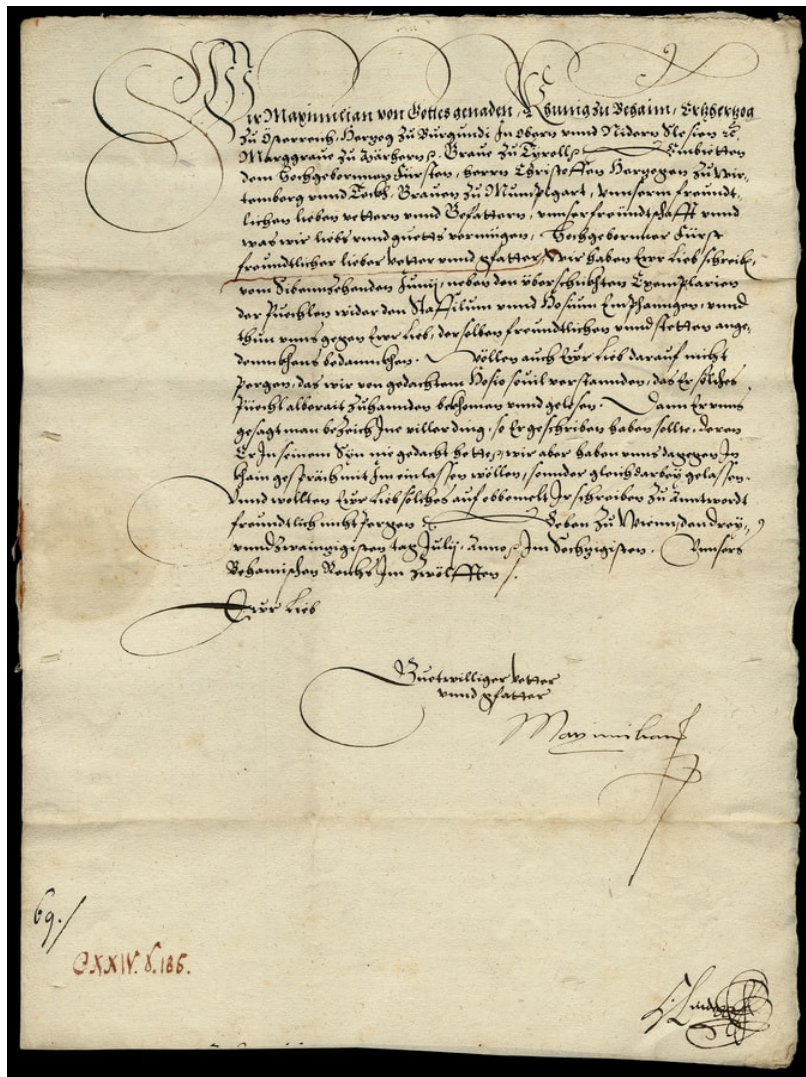 Wir Maximilian von Gottes genaden, Khunig zu Behaim, Ertzhertzog
zu Österreich, Hertzog zu Burgundi in Obern unnd Nidern Slesien etc.
Marggrave zu Märhern, Grave zu Tyroll Embietten
dem Hochgebornnen Fürsten, herrn Christoffen Hertzogen zu Wir-
temberg unnd Teckh, Graven zu Mumpelgart, unnserm freundt-
lichen lieben vettern unnd Gefattern, unnser freündtschafft unnd
was wir liebs unnd guetts vermügen, Hochgebornner Fürst
freundtlicher lieber vetter unnd gfatter, Wir haben Ewr Lieb schreib,
vom Sibenzehenden Junij, neben den überschickhten Exemplarien
der Puechlen wider den Staffilum unnd Hosium Emphanngen, unnd
thun unns gegen Ewr Lieb, derselben freundtlichen unnd stetten ange-
dennckhens bedannckhen. Wöllen auch Ewr Lieb darauf nicht
pergen, das wir von gedachtem Hosio sovil verstannden, das Er solches
Püechl alberait zuhannden bekhomen unnd gelesen. Dann Er unns
gesagt man bezeich Ine viller ding, so Er geschriben haben sollte, deren
Er In seinem Syn nie gedacht hette, wir aber haben unns dagegen In
khain gespräch mit Im einlassen wöllen, sonnder gleich darbey gelassen.
Unnd wollten Ewr Lieb solches auf obbemelt Ir schreiben zu Anntwordt
freundtlich nicht pergen Geben zu Wienn den drey-
unndzwainzigisten tag Julij, Anno Im Sechzigisten. Unnsers
Behamischen Reichs Im zwölfften
Ewr Lieb
Guetwilliger vetter
unnd gfatter
Maximilian
69.
CXXIV. 8. 186.